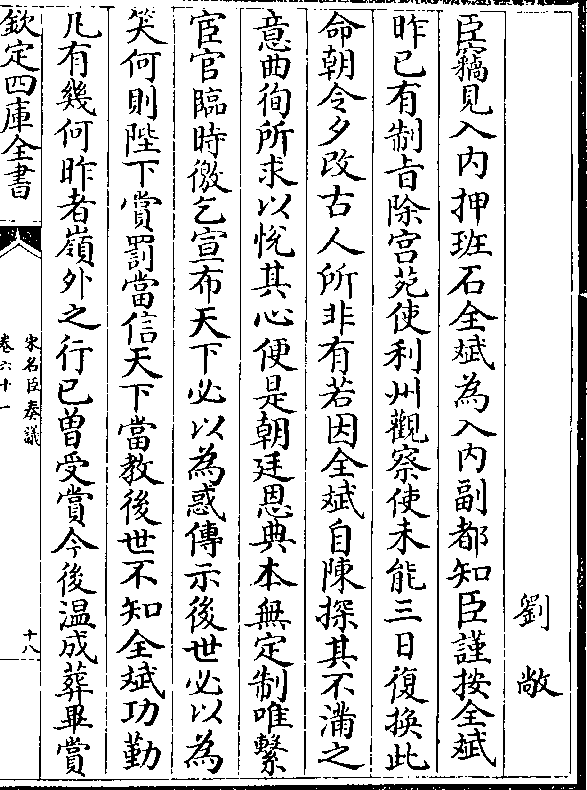 劉敞
臣竊見入内押班石全斌為入内副都知臣謹按全斌
昨已有制旨除宫苑使利州觀察使未能三日復換此
命朝令夕改古人所非有若因全斌自陳探其不滿之
意曲徇所求以悅其心便是朝廷恩典本無定制唯繫
宦官臨時徼乞宣布天下必以為惑傳示後世必以為
笑何則陛下賞罰當信天下當教後世不知全斌功勤
凡有幾何昨者嶺外之行已曽受賞今後温成葬畢賞
欽定四庫全書
宋名臣奏議
卷六十一
十八